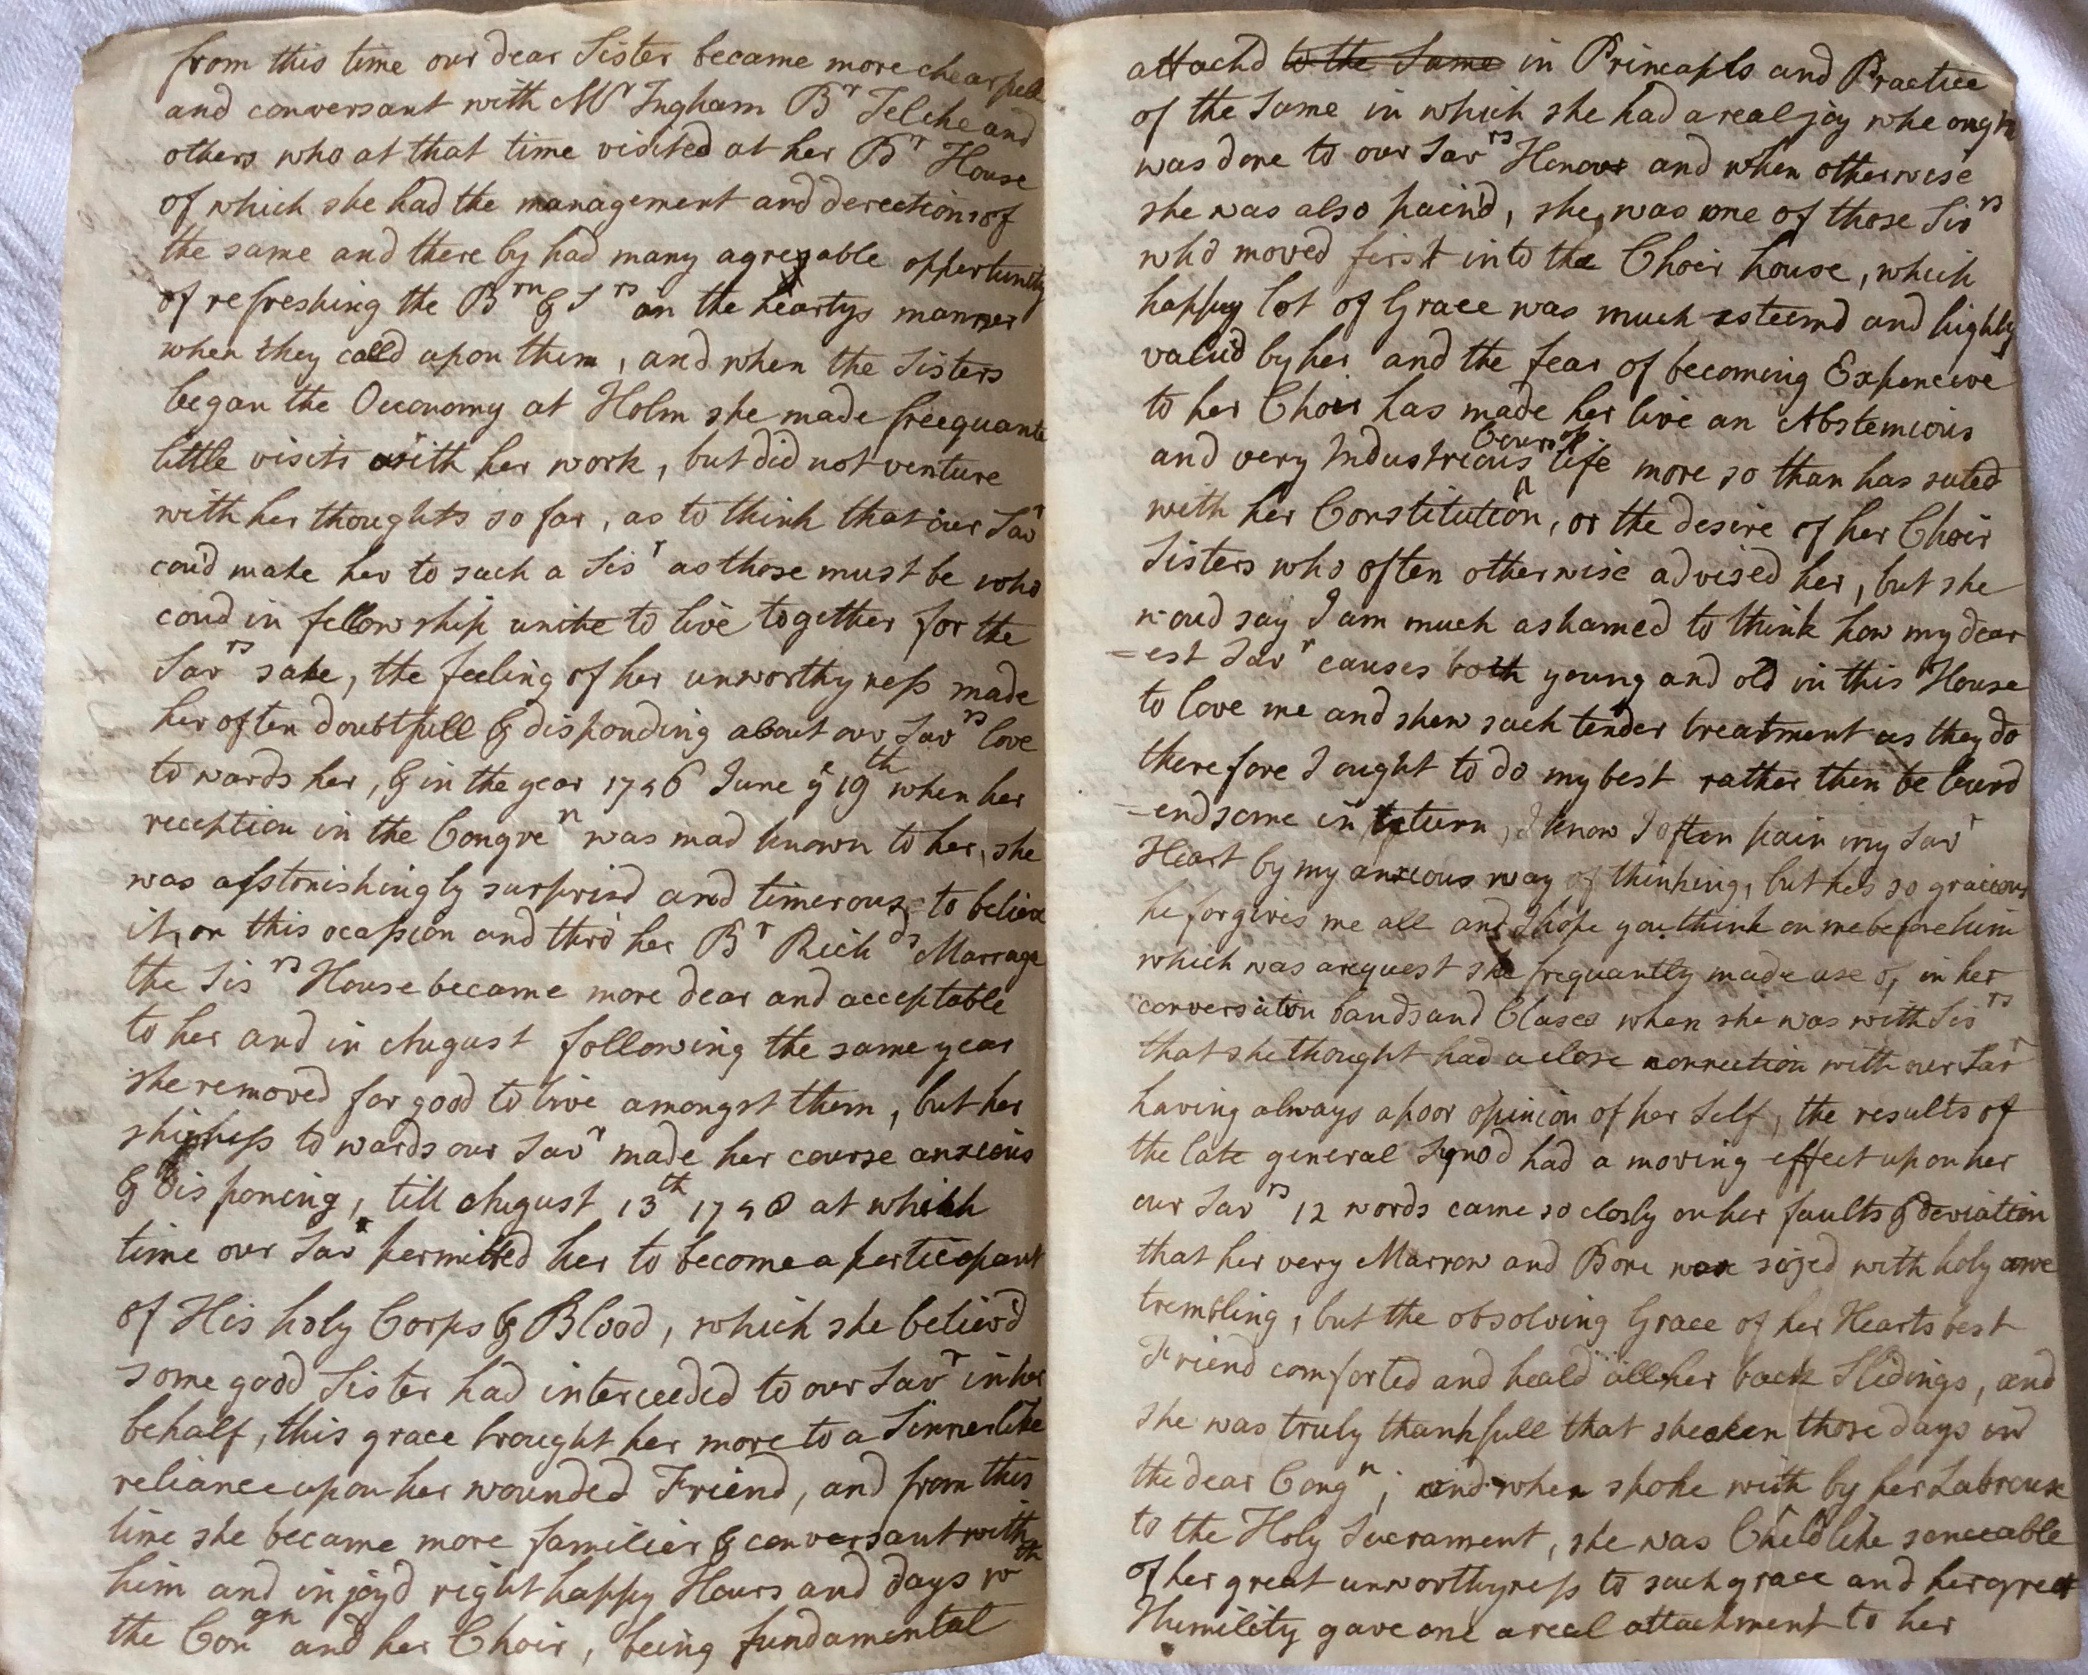 from this time our dear Sister became more chearfull
and conversant with Mr Ingham Br Telche and
others who at that time visited at her Br House
of which she had the management and derections of
the same and there by had many agreeable oppertunity
of refreshing the Brn & Srs on the heartys manner
when they calld upon them, and when the Sisters
began the Oeconomy at Holm she made freequante
little visits with her work, but did not venture
with her thoughts so far, as to think that our Savr
coud make her to such a Sisr as those must be who
coud in fellowship unite to live together for the
Savrs sake, the feeling of her unworthyness made
her often doubtfull & disponding about our Savrs love
towards her, & in the year 1756 June ye 19th when her
reception in the Congren was mad known to her, she
was asstonishingly surprisd and timerous to believe
it, on this ocassion and thro her Br Richds Marrage
the Sisrs House became more dear and acceptable
to her and in August following the same year
she removed for good to live amongst them, but her
shigness to wards our Savr made her course anxious
& disponing, till August 13th 1758 at which
time our Savr permitted her to become a perticepant
of His holy Corps & Blood, which she believd
some good Sister had interceeded to our Savr in her
behalf, this grace brought her more to a Sinnerlike
reliance upon her wounded Friend, and from this
time she became more familier & conversant with
him and injoyd right happy Hours and days wth
the Congn and her Choir, being fundamental
attachd to the Same in Principls and Practice
of the Same in which she had a real joy whe ought
was done to our Savrs Honour and when otherwise
she was also paind, she was one of those Sisrs
who moved first into the Choir house, which
happy lot of Grace was much esteemd and highly
valud by her and the fear of becoming Expencive
to her Choir has made her live an Abstemious
and very Industrious Cours of life more so than has suted
with her Constitution, or the desire of her Choir
Sisters who often otherwise advised her, but she
woud say I am much ashamed to think how my dear
=est Savr causes both young and old in this House
to love me and shew such tender treatment as they do
therefore I ought to do my best rather then be burd
=endsome in return, I know I often pain my Savr
Heart by my anxious way of thinking, but hes so gracious
he forgives me all and I hope you think on me before him
which was a request she frequantly made use of, in her
conversation bands and Clases when she was with Sisrs
that she thought had a close connection with our Savr
having always a poor opinion of her Self, the results of
the late general Synod had a moving effect upon her
our Savrs 12 words came so closly on her faults & deviation
that her very Marrow and Bone was seized with holy awe
trembling, but the obsolving Grace of her Hearts best
Friend comforted and heald all her back Slidings, and
she was truly thankfull that she those days in
the dear Congn; and when spoke with by her Labrouse
to the Holy Sacrament, she was Childlike senceable
of her great unworthyness to such grace and her great
Humility gave one a real attachment to her